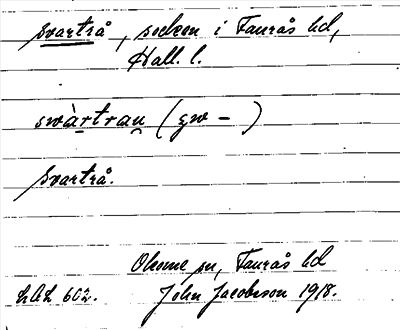 Svartrå, socken i Faurås hd,
Hall. l.
swàrtrau̯ (zw – )
Svartrå.
Okome sn, Faurås hd
LAL 602. John Jacobsson 1918.